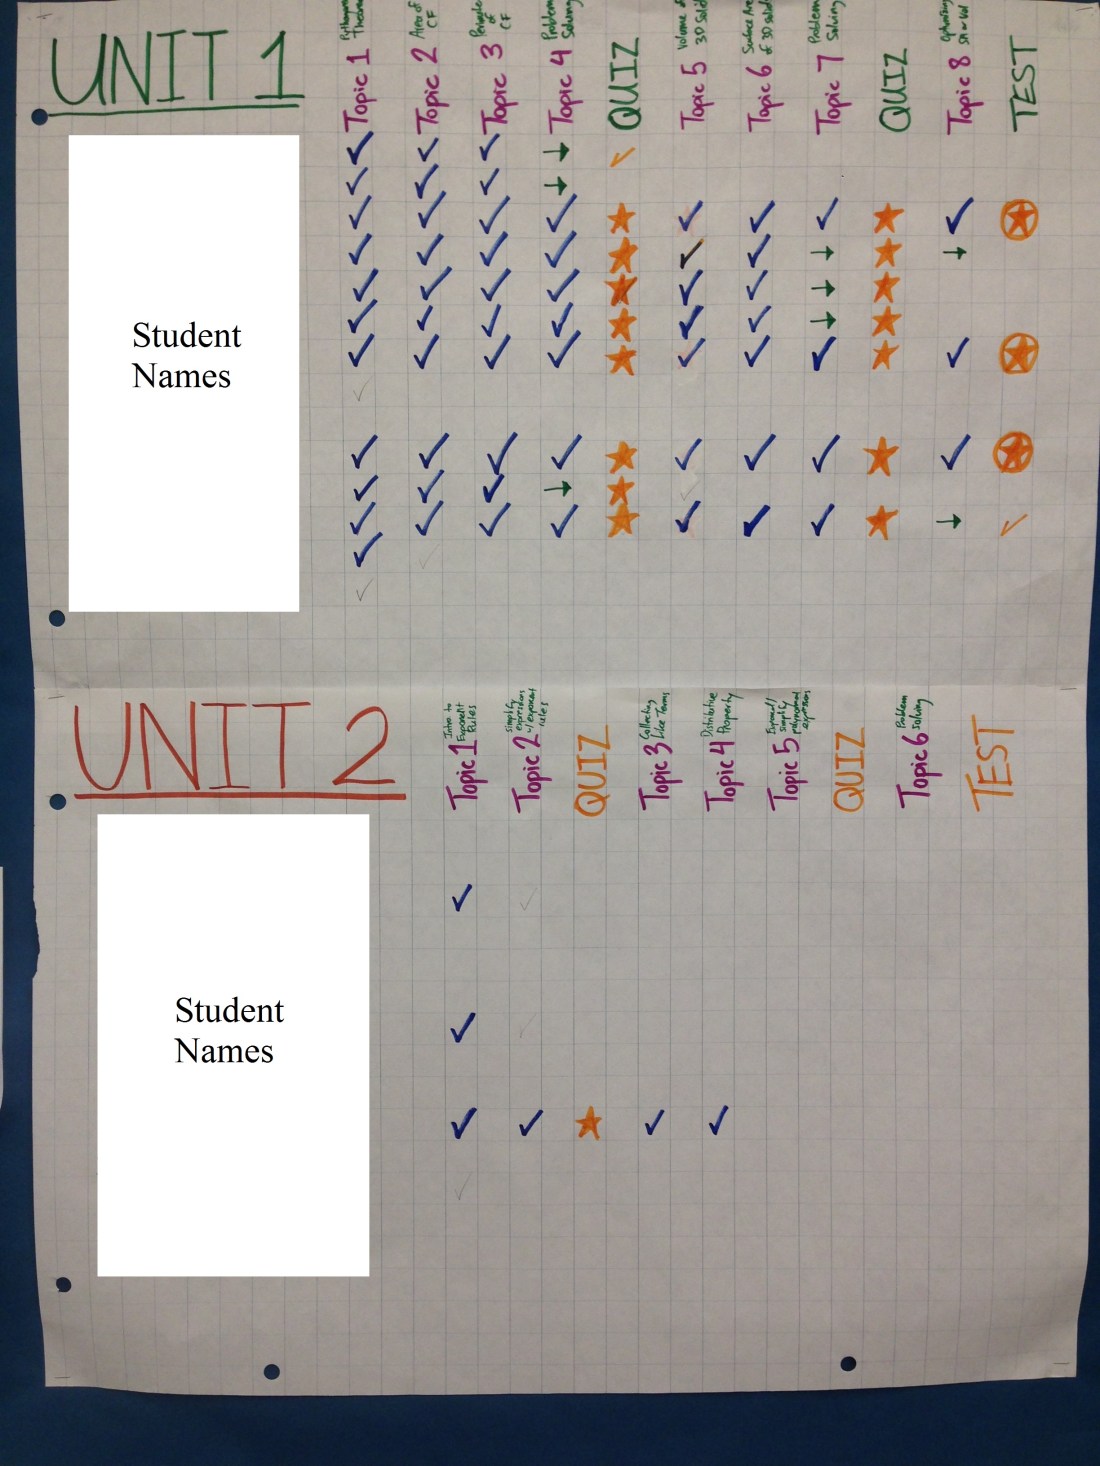 UNIT 1
Topic 1
Topic 2 Area of CF
Topic 3 of CF
Topic 4 Problem Solving
QUIZ
Topic 5 Volume of 3D Solids
Topic 6 Surface Area of 3D solids
Topic 7 Problem Solving
QUIZ
Topic 8 SA or Vol
TEST
Student
Names
UNIT 2
Topic 1 Intro to Exponent Rules
Topic 2 Simplify expressions w/ exponent rules
QUIZ
Topic 3 Collecting Like Terms
Topic 4 Distributive Property
Topic 5 Expand/ simplify polynomial
QUIZ
Topic 6 Problem Solving
TEST
Student
Names